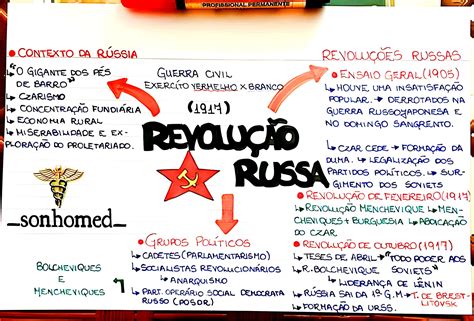 PROFISSIONAL PERMANENTE
CONTEXTO DA RÚSSIA
↳ "O GIGANTE DOS PÉS
DE BARRO"
↳ CZARISMO
↳ CONCENTRAÇÃO FUNDIÁRIA
↳ ECONOMIA RURAL
↳ MISERABILIDADE E EX-
PLORAÇÃO DO PROLETARIADO.
GUERRA CIVIL
EXERCITO VERMELHO X BRANCO
(1917)
REVOLUÇÃO
RUSSA
REVOLUÇÕES RUSSAS
ENSAIO GERAL (1905)
↳ HOUVE UMA INSATISFAÇÃO
POPULAR. → DERROTADOS NA
GUERRA RUSSO-JAPONESA E
NO DOMINGO SANGRENTO.
↳ CZAR CEDE → FORMAÇÃO DA
DUMA. → LEGALIZAÇÃO DOS
PARTIDOS POLÍTICOS. → SUR-
GIMENTO DOS SOVIETS
REVOLUÇÃO DE FEVEREIRO (1917)
↳ REVOLUÇÃO MENCHEVIQUE → MEN-
CHEVIQUES + BURGUESIA → ABDICAÇÃO
DO CZAR
REVOLUÇÃO DE OUTUBRO (1917)
↳ TESES DE ABRIL → "TODO PODER AOS
↳ R. BOLCHEVIQUE SOVIETS"
↳ LIDERANÇA DE LÊNIN
↳ RÚSSIA SAI DA 1ª G.M → T. DE BREST-
LITOVSK
↳ FORMAÇÃO DA URSS.
_sonhomed_
GRUPOS POLÍTICOS
↳ CADETES (PARLAMENTARISMO)
↳ SOCIALISTAS REVOLUCIONÁRIOS
↳ ANARQUISMO
↳ PART. OPERÁRIO SOCIAL DEMOCRATA
RUSSO (POSDR)
BOLCHEVIQUES
E
MENCHEVIQUES